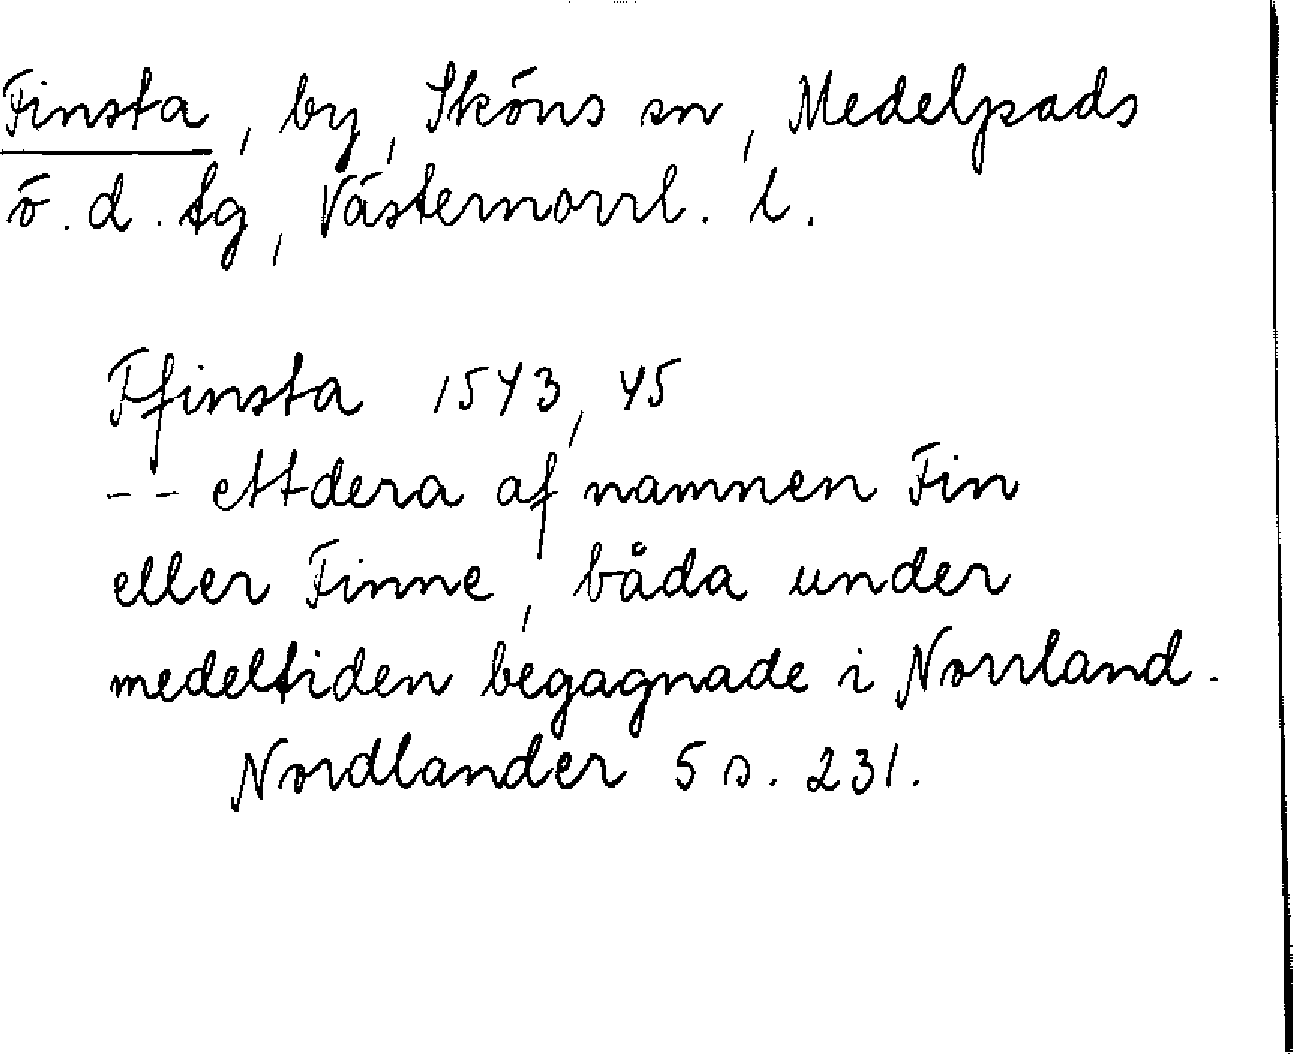 Finsta, by, Sköns sn, Medelpads
ö. d. tg, Västernorrl. l.
Ffinsta 1543, 45
-- ettdera af namnen Fin
eller Finne, båda under
medeltiden begagnade i Norrland.
Nordlander 5 s. 231.